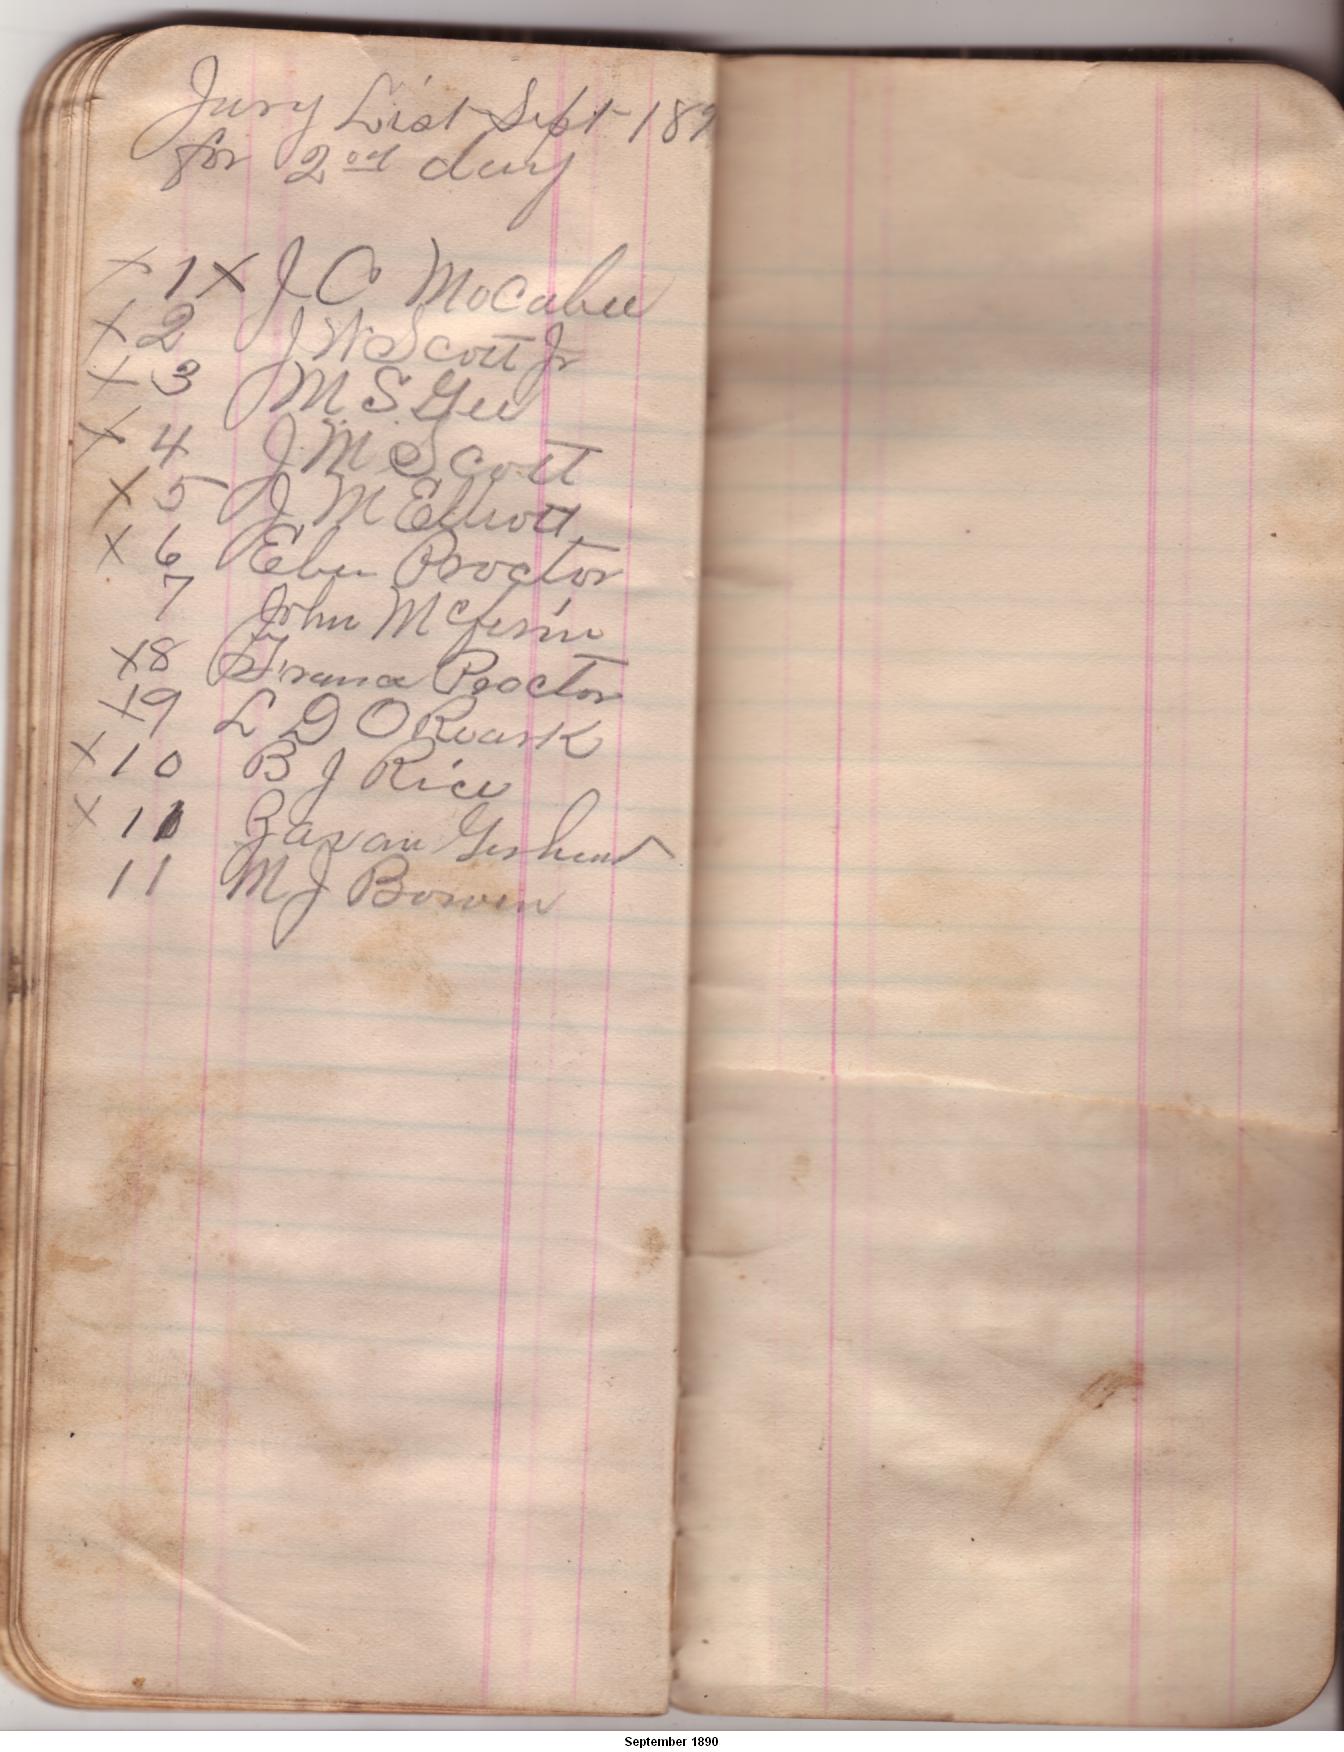 Jury List Sept 189
for 2nd day
x 1 x J C McCabee
x 2 J W Scott Jr
x 3 M S Gee
x 4 J. M. Scott
x 5 J M Elliott
x 6 Eben Proctor
7 John
x8 Proctor
x9 L D O Roark
x 10 B J Rice
x 11
11 M J Bowen
September 1890